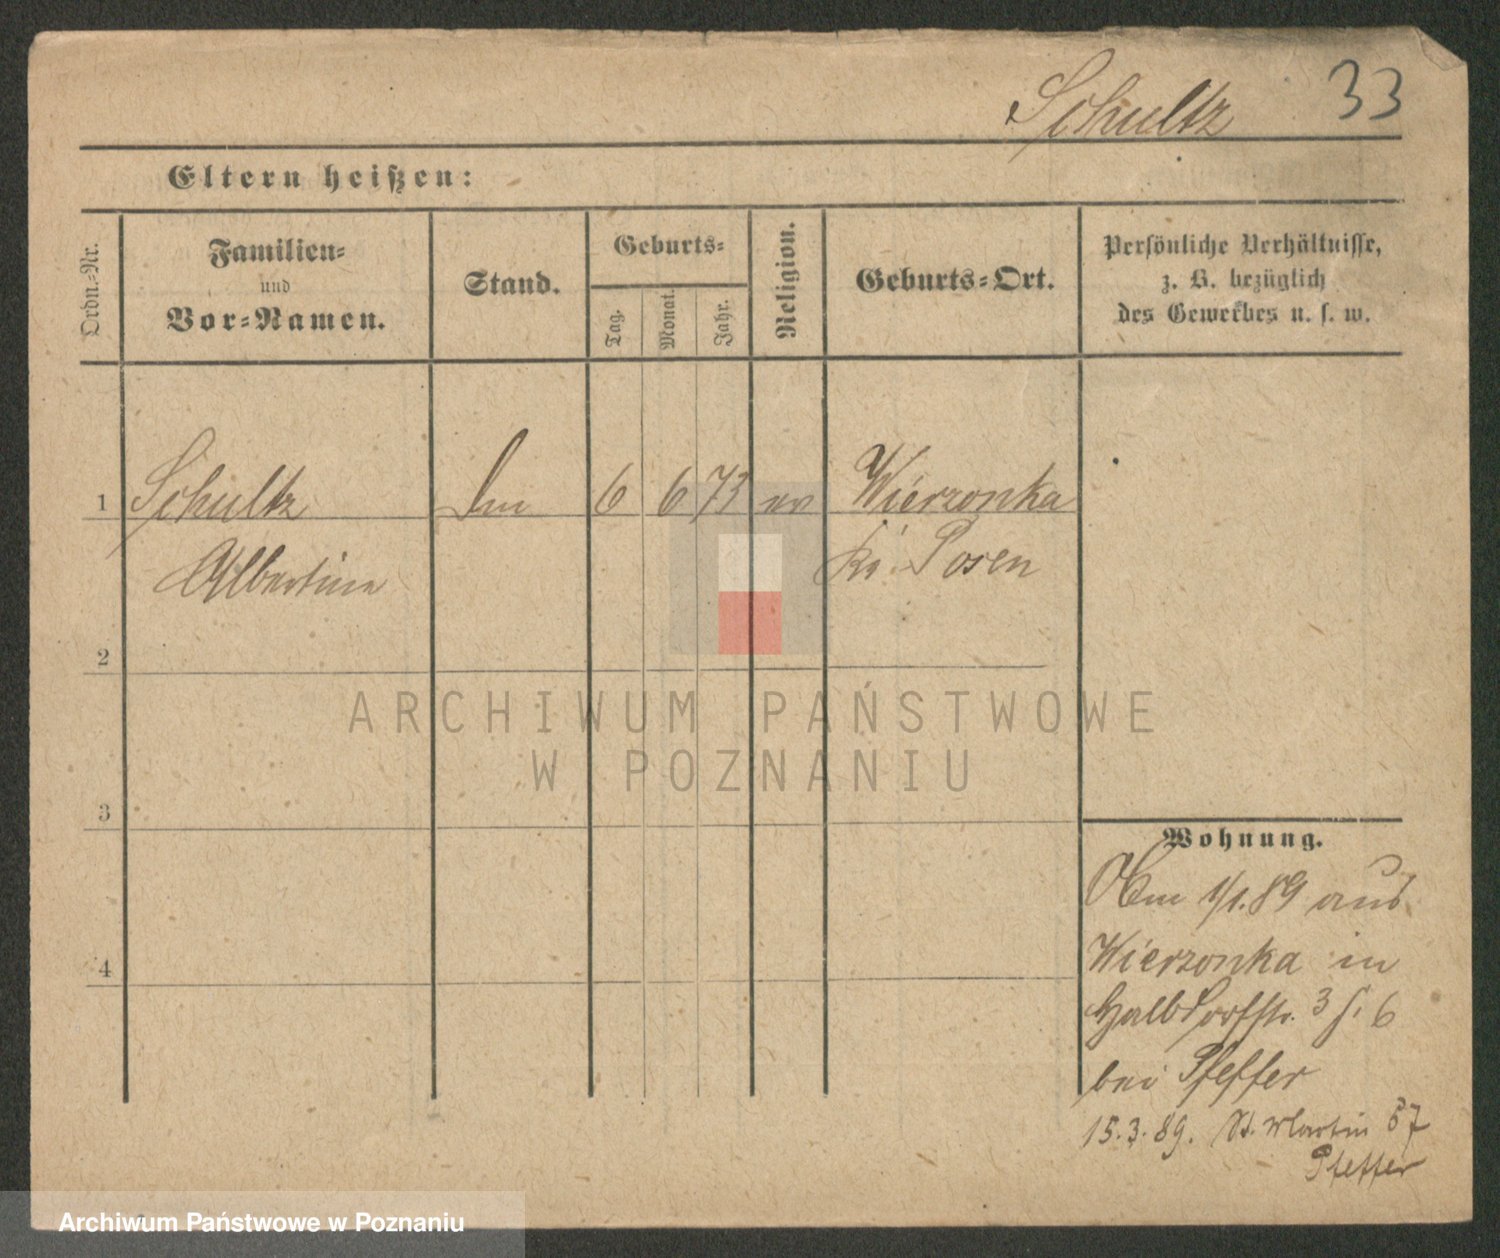 Schultz 33
Eltern heißen:
Ordn.-Nr.
Familien-
und
Vor-Namen.
Stand.
Geburts-
Tag.
Monat.
Jahr.
Religion.
Geburts-Ort.
Persönliche Verhältnisse,
z. B. bezüglich
des Gewerbes u. s. w.
1 Schultz 6 6 73 ev Wierzonka
Albertine Kr. Posen
2
3
4
Wohnung.
1/1.89 aus
Wierzonka in
Halbdorfstr. 3 6
bei Pfeffer
15.3.89. St. Martin 57
Pfeffer
ARCHIWUM PAŃSTWOWE
W POZNANIU
Archiwum Państwowe w Poznaniu